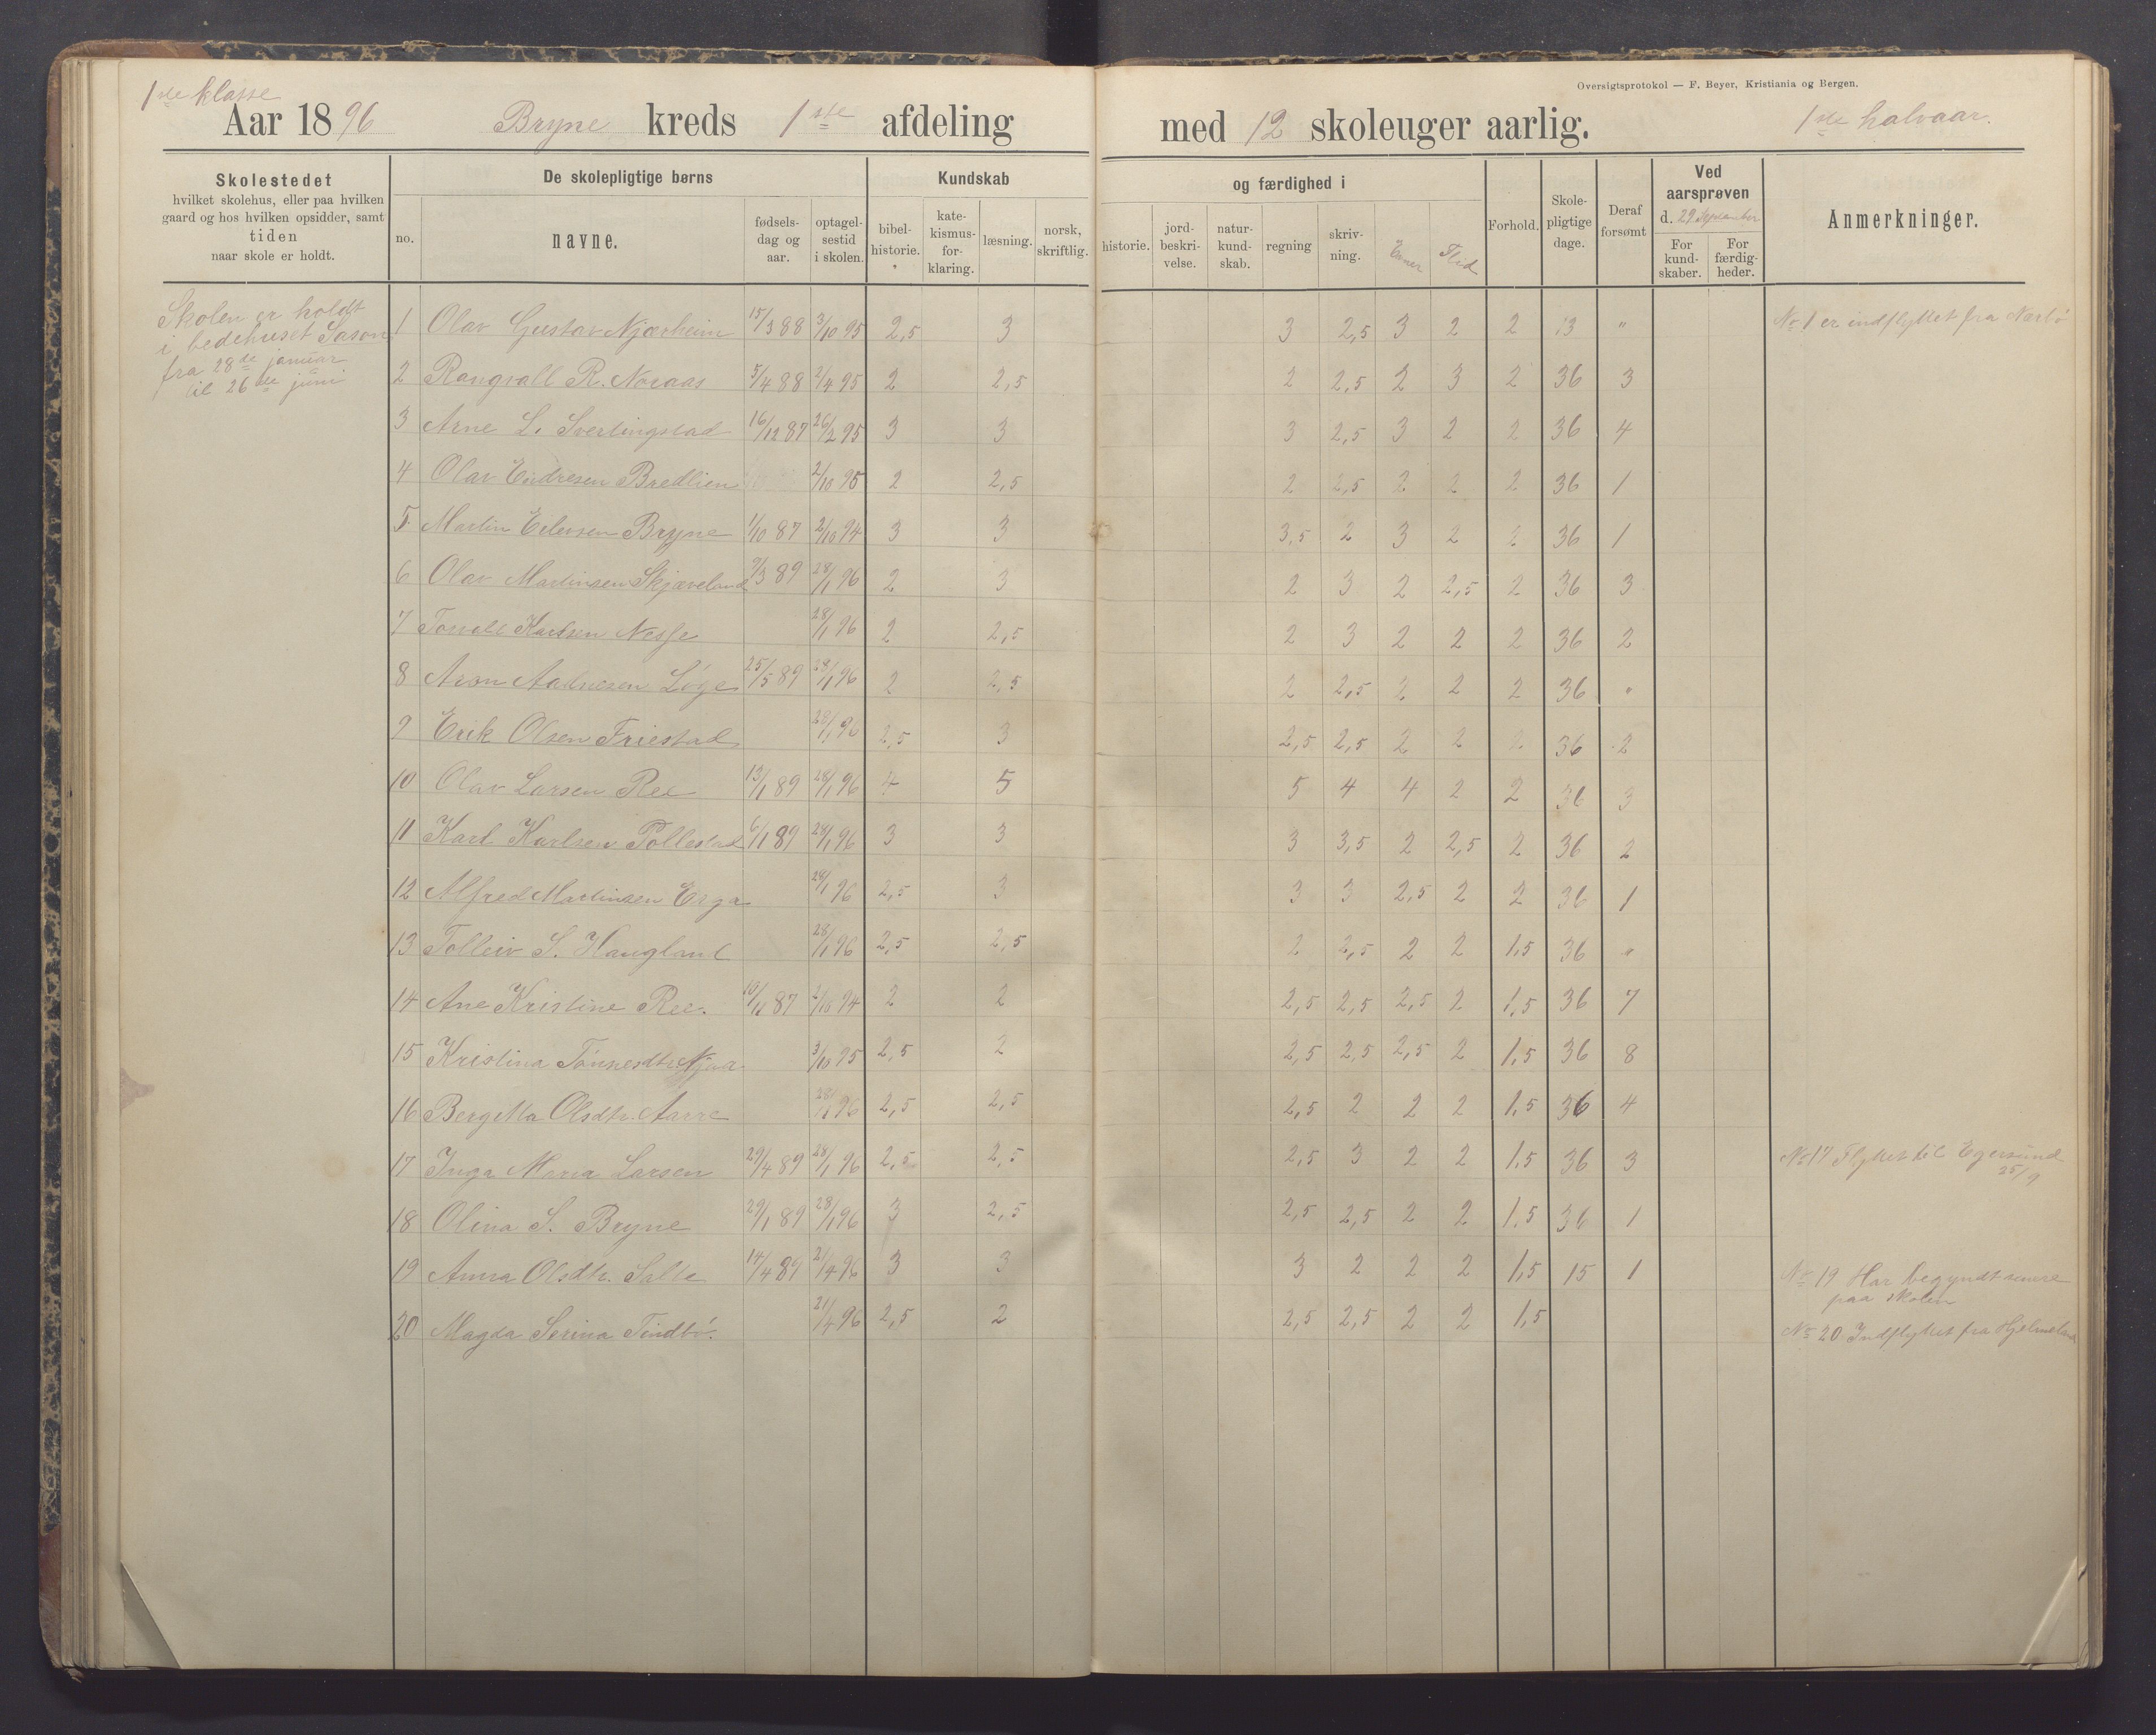 1ste klasse
Oversigtsprotokol — F. Beyer, Kristiania og Bergen.
Aar 1896 Bryne kreds 1ste afdeling med 12 skoleuger aarlig. 1ste halvaar.
Skolestedet
hvilket skolehus, eller paa hvilken
gaard og hos hvilken opsidder, samt
tiden
naar skole er holdt.
De skolepligtige børns
no. navne. fødsels-dag og aar. optagel-sestid i skolen.
Kundskab og færdighed i
bibel-historie. kate-kismus-for-klaring. læsning. norsk, skriftlig. historie. jord-beskri-velse. natur-kund-skab. regning skriv-ning. Evner Flid
Forhold. Skole-pligtige dage. Deraf forsømt
Ved aarsprøven d. 29 September
For kund-skaber. For færdig-heder.
Anmerkninger.
Skolen er holdt
i bedehuset Saron
fra 28de januar
til 26de juni
1 Olav Gustav Njærheim 15/3 88 3/10 95 2,5 3 3 2,5 3 2 2 13 " No 1 er indflyttet fra Nærbø
2 Rangvall R. Noraas 5/4 88 2/4 95 2 2,5 2 2,5 2 3 2 36 3
3 Arne L. Svertingstad 16/12 87 26/2 95 3 3 3 2,5 3 2 2 36 4
4 Olav Endresen Bredlien 2/10 95 2 2,5 2 2,5 2 2 2 36 1
5 Martin Eilersen Bryne 1/10 87 2/10 94 3 3 3,5 2 3 2 2 36 1
6 Olav Martinsen Skjæveland 9/3 89 28/1 96 2 3 2 3 2 2,5 2 36 3
7 Karlsen Nesse 28/1 96 2 2,5 2 3 2 2 2 36 2
8 Aron Aadnesen Løge 25/5 89 28/1 96 2 2,5 2 2,5 2 2 2 36 "
9 Erik Olsen Friestad 28/1 96 2,5 3 2,5 2,5 2 2 2 36 2
10 Olav Larsen Ree 13/1 89 28/1 96 4 5 5 4 4 2 2 36 3
11 Karl Karlsen Pollestad 6/1 89 28/1 96 3 3 3 3,5 2 2,5 2 36 2
12 Alfred Martinsen Erga 28/1 96 2,5 3 3 3 2,5 2 2 36 1
13 Tolleiv S. Haugland 28/1 96 2,5 2,5 2 2,5 2 2 1,5 36 "
14 Ane Kristine Ree. 10/11 87 2/10 94 2 2 2,5 2,5 2,5 2 1,5 36 7
15 Kristina Tønnesdtr Njaa 3/10 95 2,5 2 2,5 2,5 2,5 2 1,5 36 8
16 Bergitta Olsdtr. Aarre 28/1 96 2,5 2,5 2,5 2 2 2 1,5 36 4
17 Inga Maria Larsen 29/4 89 28/1 96 2,5 2,5 2,5 3 2 2 1,5 36 3 No 17 Flyttet til Egersund
25/9
18 Olina S. Bryne 29/1 89 28/1 96 3 2,5 2,5 2,5 2 2 1,5 36 1
19 Anna Olsdtr. Salte 14/4 89 21/4 96 3 3 3 2 2 2 1,5 15 1 No 19 Har begyndt senere
paa skolen
20 Magda Serina Tindbø. 21/4 96 2,5 2 2,5 2,5 2 2 1,5 No 20 Indflyttet fra Hjelmeland